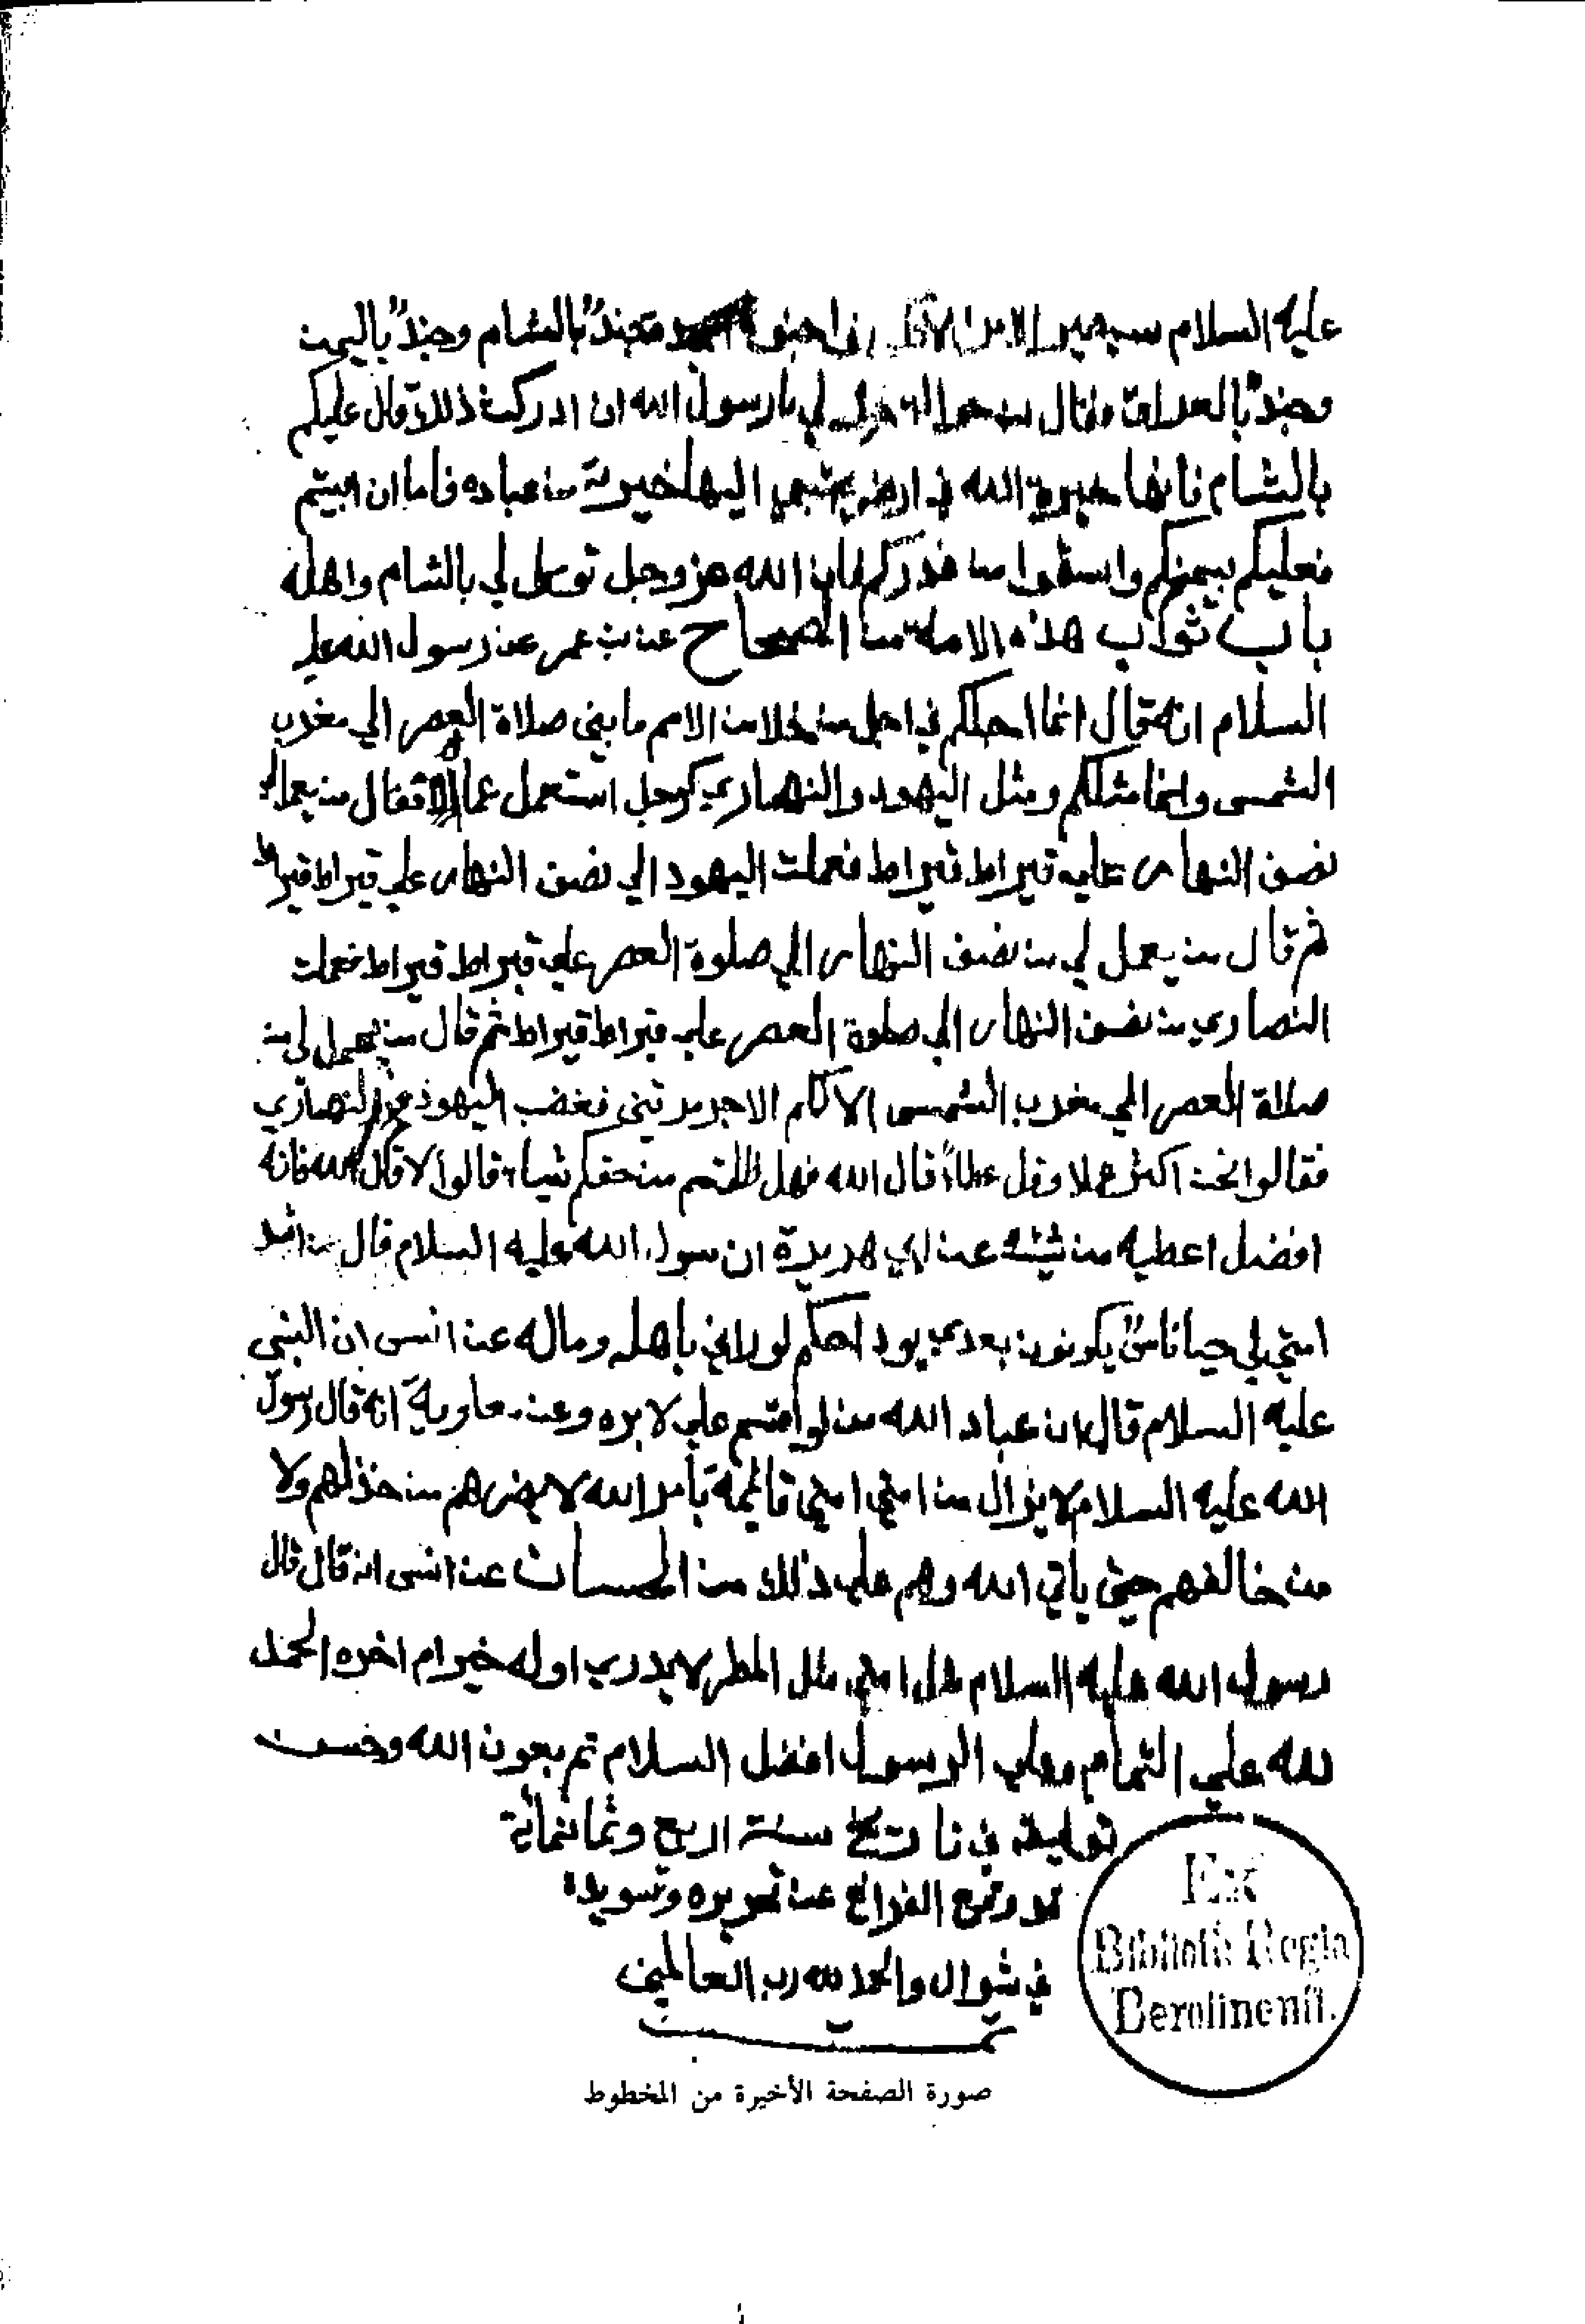 عليه السلام سيصير الامر الا ان جنودا مجندة جند بالشام وجند باليمن
وجند بالعراق فقال بن حوالة خر لي يا رسول الله ان ادركت ذلك قال عليكم
بالشام فانها خيرة الله في ارضه يجتبي اليها خيرته من عباده فاما ان ابيتم
فعليكم بيمنكم واسقوا من غدركم فان الله عز وجل توكل لي بالشام واهله
باب ثواب هذه الامة من الصحاح عن بن عمر عن رسول الله عليه
السلام انه قال انما اجلكم في اجل من خلا من الامم ما بين صلاة العصر الي مغرب
الشمس وانما مثلكم ومثل اليهود والنصاري كرجل استعمل عمالا فقال من يعمل الي
نصف النهار علي قيراط قيراط فعملت اليهود الي نصف النهار علي قيراط قيراط
ثم قال من يعمل لي من نصف النهار الي صلوة العصر علي قيراط قيراط فعملت
النصاري من نصف النهار الي صلوة العصر علي قيراط قيراط ثم قال من يعمل لي من
صلاة العصر الي مغرب الشمس الا لكم الاجر مرتين فغضب اليهود والنصاري
فقالوا نحن اكثر عملا وقل عطاء قال الله فهل ظلمتم من حقكم شيأ قالوا لا قال الله فانه
افضل اعطيه من شئت عن ابي هريرة ان رسول الله عليه السلام قال من اشد
امتي لي حبا ناس يكونون بعدي يود احدكم لو راني باهله وماله عن انس ان النبي
عليه السلام قال ان عباد الله من لو اقسم علي لابره وعن معاوية انه قال رسول
الله عليه السلام لا يزال من امتي امتي قائمة بامر الله لا يضرهم من خذلهم ولا
من خالفهم حتي ياتي الله وهم علي ذلك من الحسان عن انس انه قال قال
رسول الله عليه السلام مثل امتي مثل المطر لا يدري اوله خير ام اخره الحمد
لله علي التمام وعلي الرسول افضل السلام تم بعون الله وحسن
توفيقه في تاريخ سنة اربع وثمانمائة
قد وقع الفراغ عن تحريره وتسويده
في شوال والحمد لله رب العالمين
تمت
Ex
Biblioth. Regia
Berolinensi.
صورة الصفحة الأخيرة من المخطوط